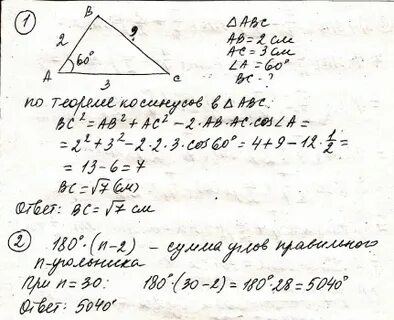 1
B
2
?
60°
A
3
C
△ABC
AB = 2 см
AC = 3 см
∠A = 60°
BC - ?
по теореме косинусов в △ABC:
BC² = AB² + AC² - 2·AB·AC·cos∠A =
= 2² + 3² - 2·2·3·cos60° = 4 + 9 - 12·1/2 =
= 13 - 6 = 7
BC = √7 (см)
Ответ: BC = √7 см
2
180°·(n-2) - сумма углов правильного
n-угольника
При n = 30: 180°·(30-2) = 180°·28 = 5040°
Ответ: 5040°